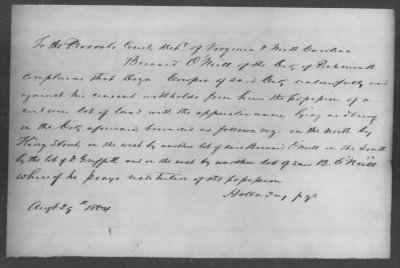 To the Provosts Court, Dept of Virginia & North Carolina
Bernard O'Neill of the City of Portsmouth
complains that Cooper of said City unlawfully and
against his consent withholds from him the possession of a
certain lot of land with the appurtenances lying and being
in the City aforesaid bounded as follows viz: on the north by
King Street on the west by another lot of said Bernard O'Neill on the South
by the lot of Griffith and on the east by another lot of said B. O'Neill
wherefor he prays restitution of the possession
Holladay p.q.
Augt 29th 1864